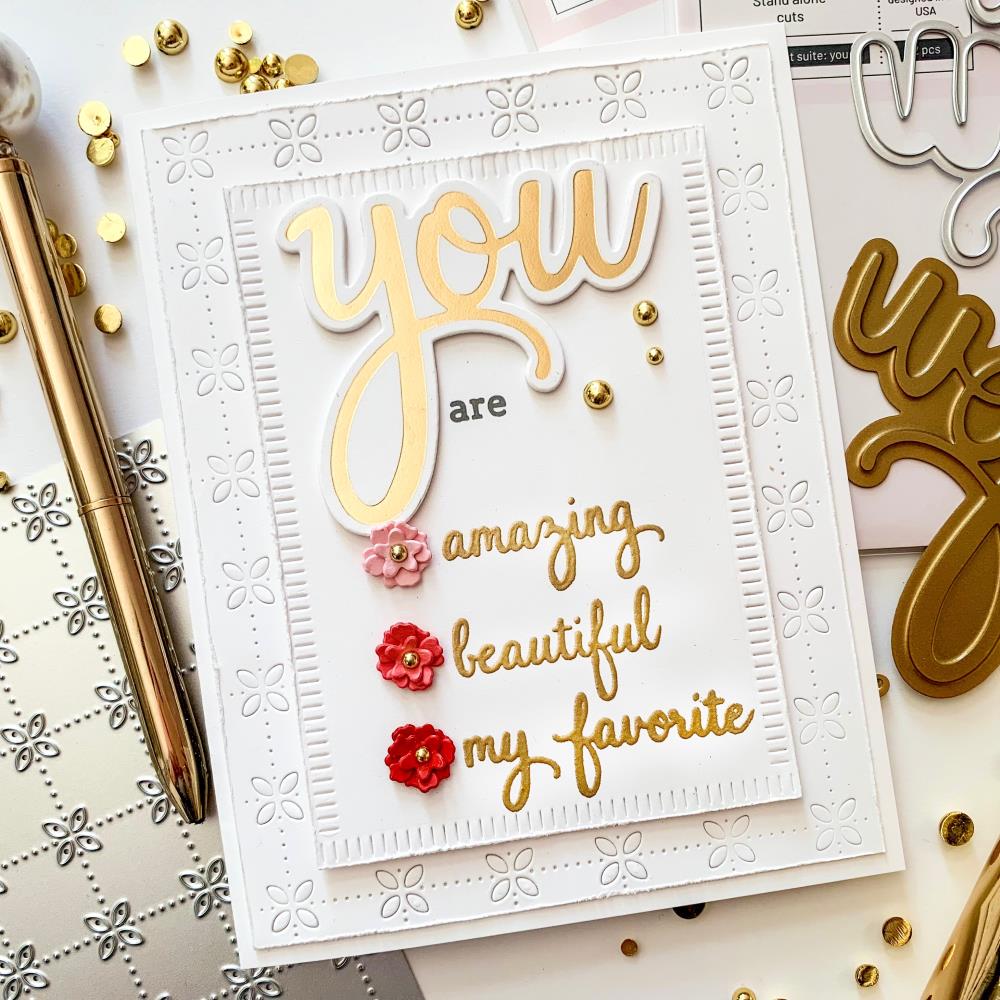 Stand alone
cuts
designed in
USA
t suite: you
2 pcs
you
are
amazing
beautiful
my favorite